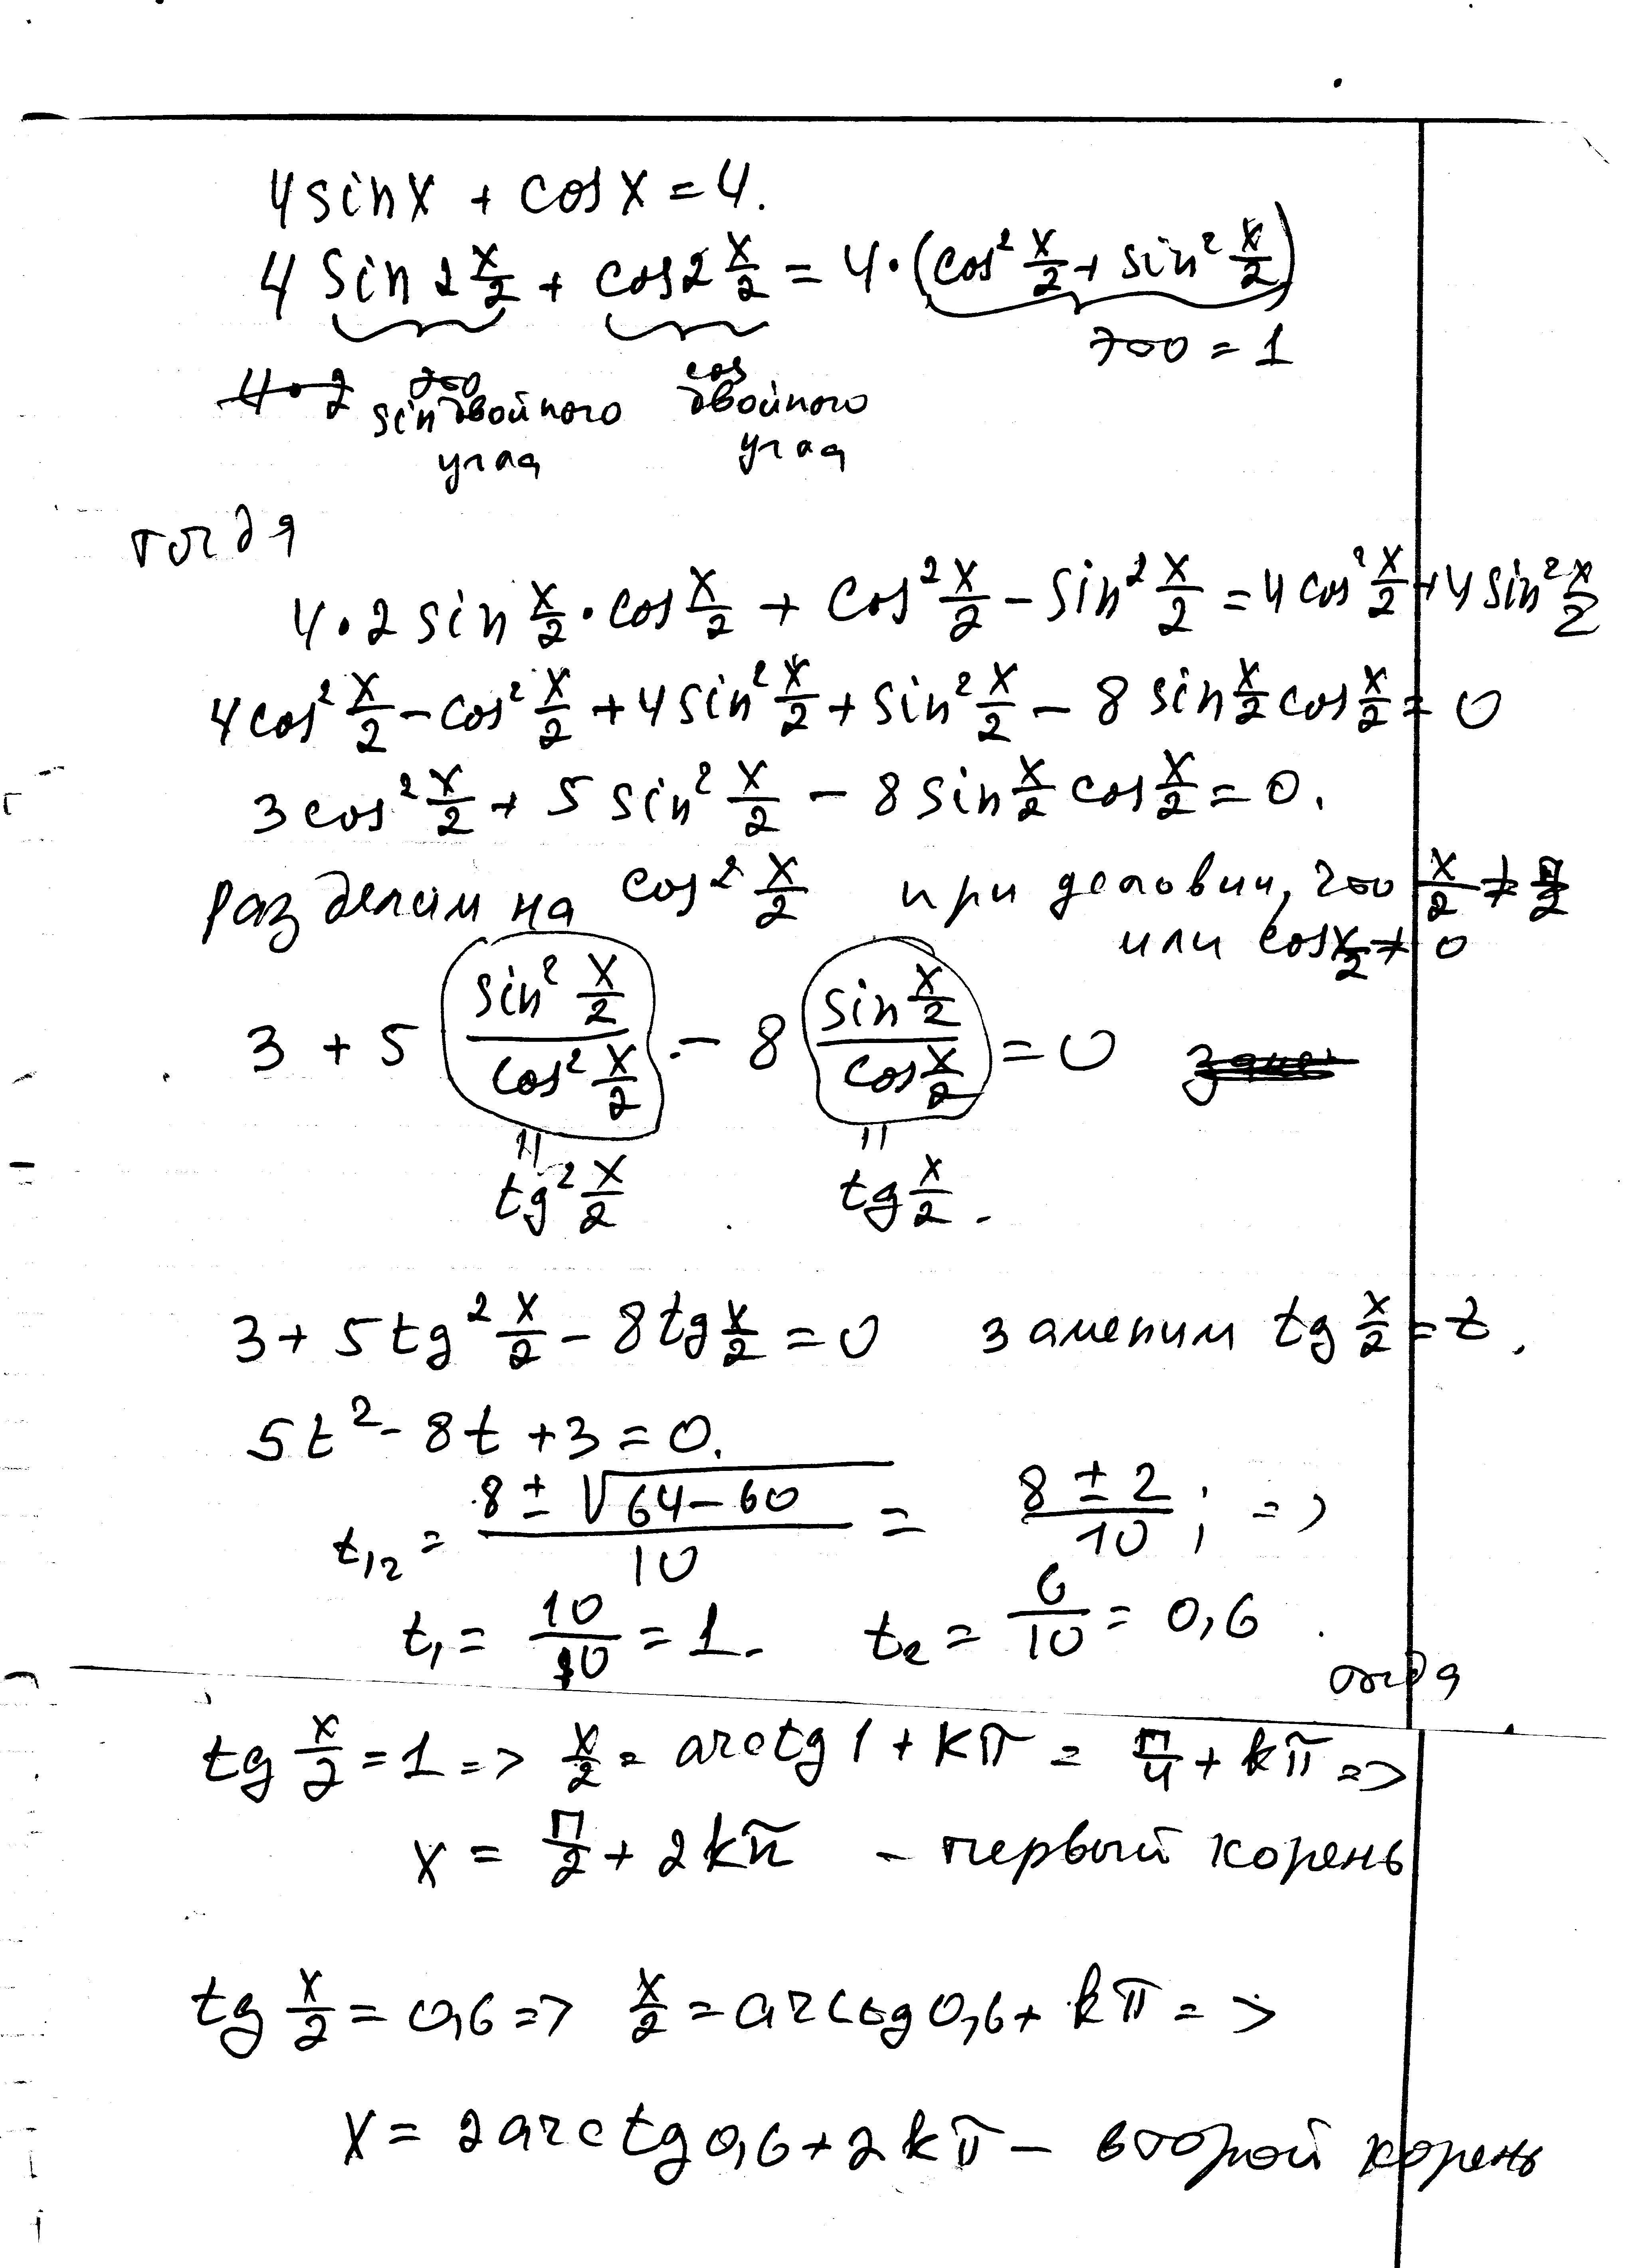 4 sin x + cos x = 4.
4 sin 2 x/2 + cos 2 x/2 = 4·(cos² x/2 + sin² x/2)
это = 1
4·2 это sin двойного угла
cos двойного угла
тогда
4·2 sin x/2 · cos x/2 + cos² x/2 − sin² x/2 = 4 cos² x/2 + 4 sin² x/2
4 cos² x/2 − cos² x/2 + 4 sin² x/2 + sin² x/2 − 8 sin x/2 cos x/2 = 0
3 cos² x/2 + 5 sin² x/2 − 8 sin x/2 cos x/2 = 0.
разделим на cos² x/2 при условии, что x/2 ≠ π/2
или cos x/2 ≠ 0
3 + 5 (sin² x/2)/(cos² x/2) − 8 (sin x/2)/(cos x/2) = 0
= tg² x/2 = tg x/2.
3 + 5 tg² x/2 − 8 tg x/2 = 0 заменим tg x/2 = t.
5t² - 8t + 3 = 0.
t₁₂ = (8 ± √(64−60))/10 = (8 ± 2)/10 ; =>
t₁ = 10/10 = 1. t₂ = 6/10 = 0,6
tg x/2 = 1 => x/2 = arctg 1 + kπ = π/4 + kπ =>
x = π/2 + 2kπ – первый корень
tg x/2 = 0,6 => x/2 = arctg 0,6 + kπ =>
x = 2 arctg 0,6 + 2kπ – второй корень